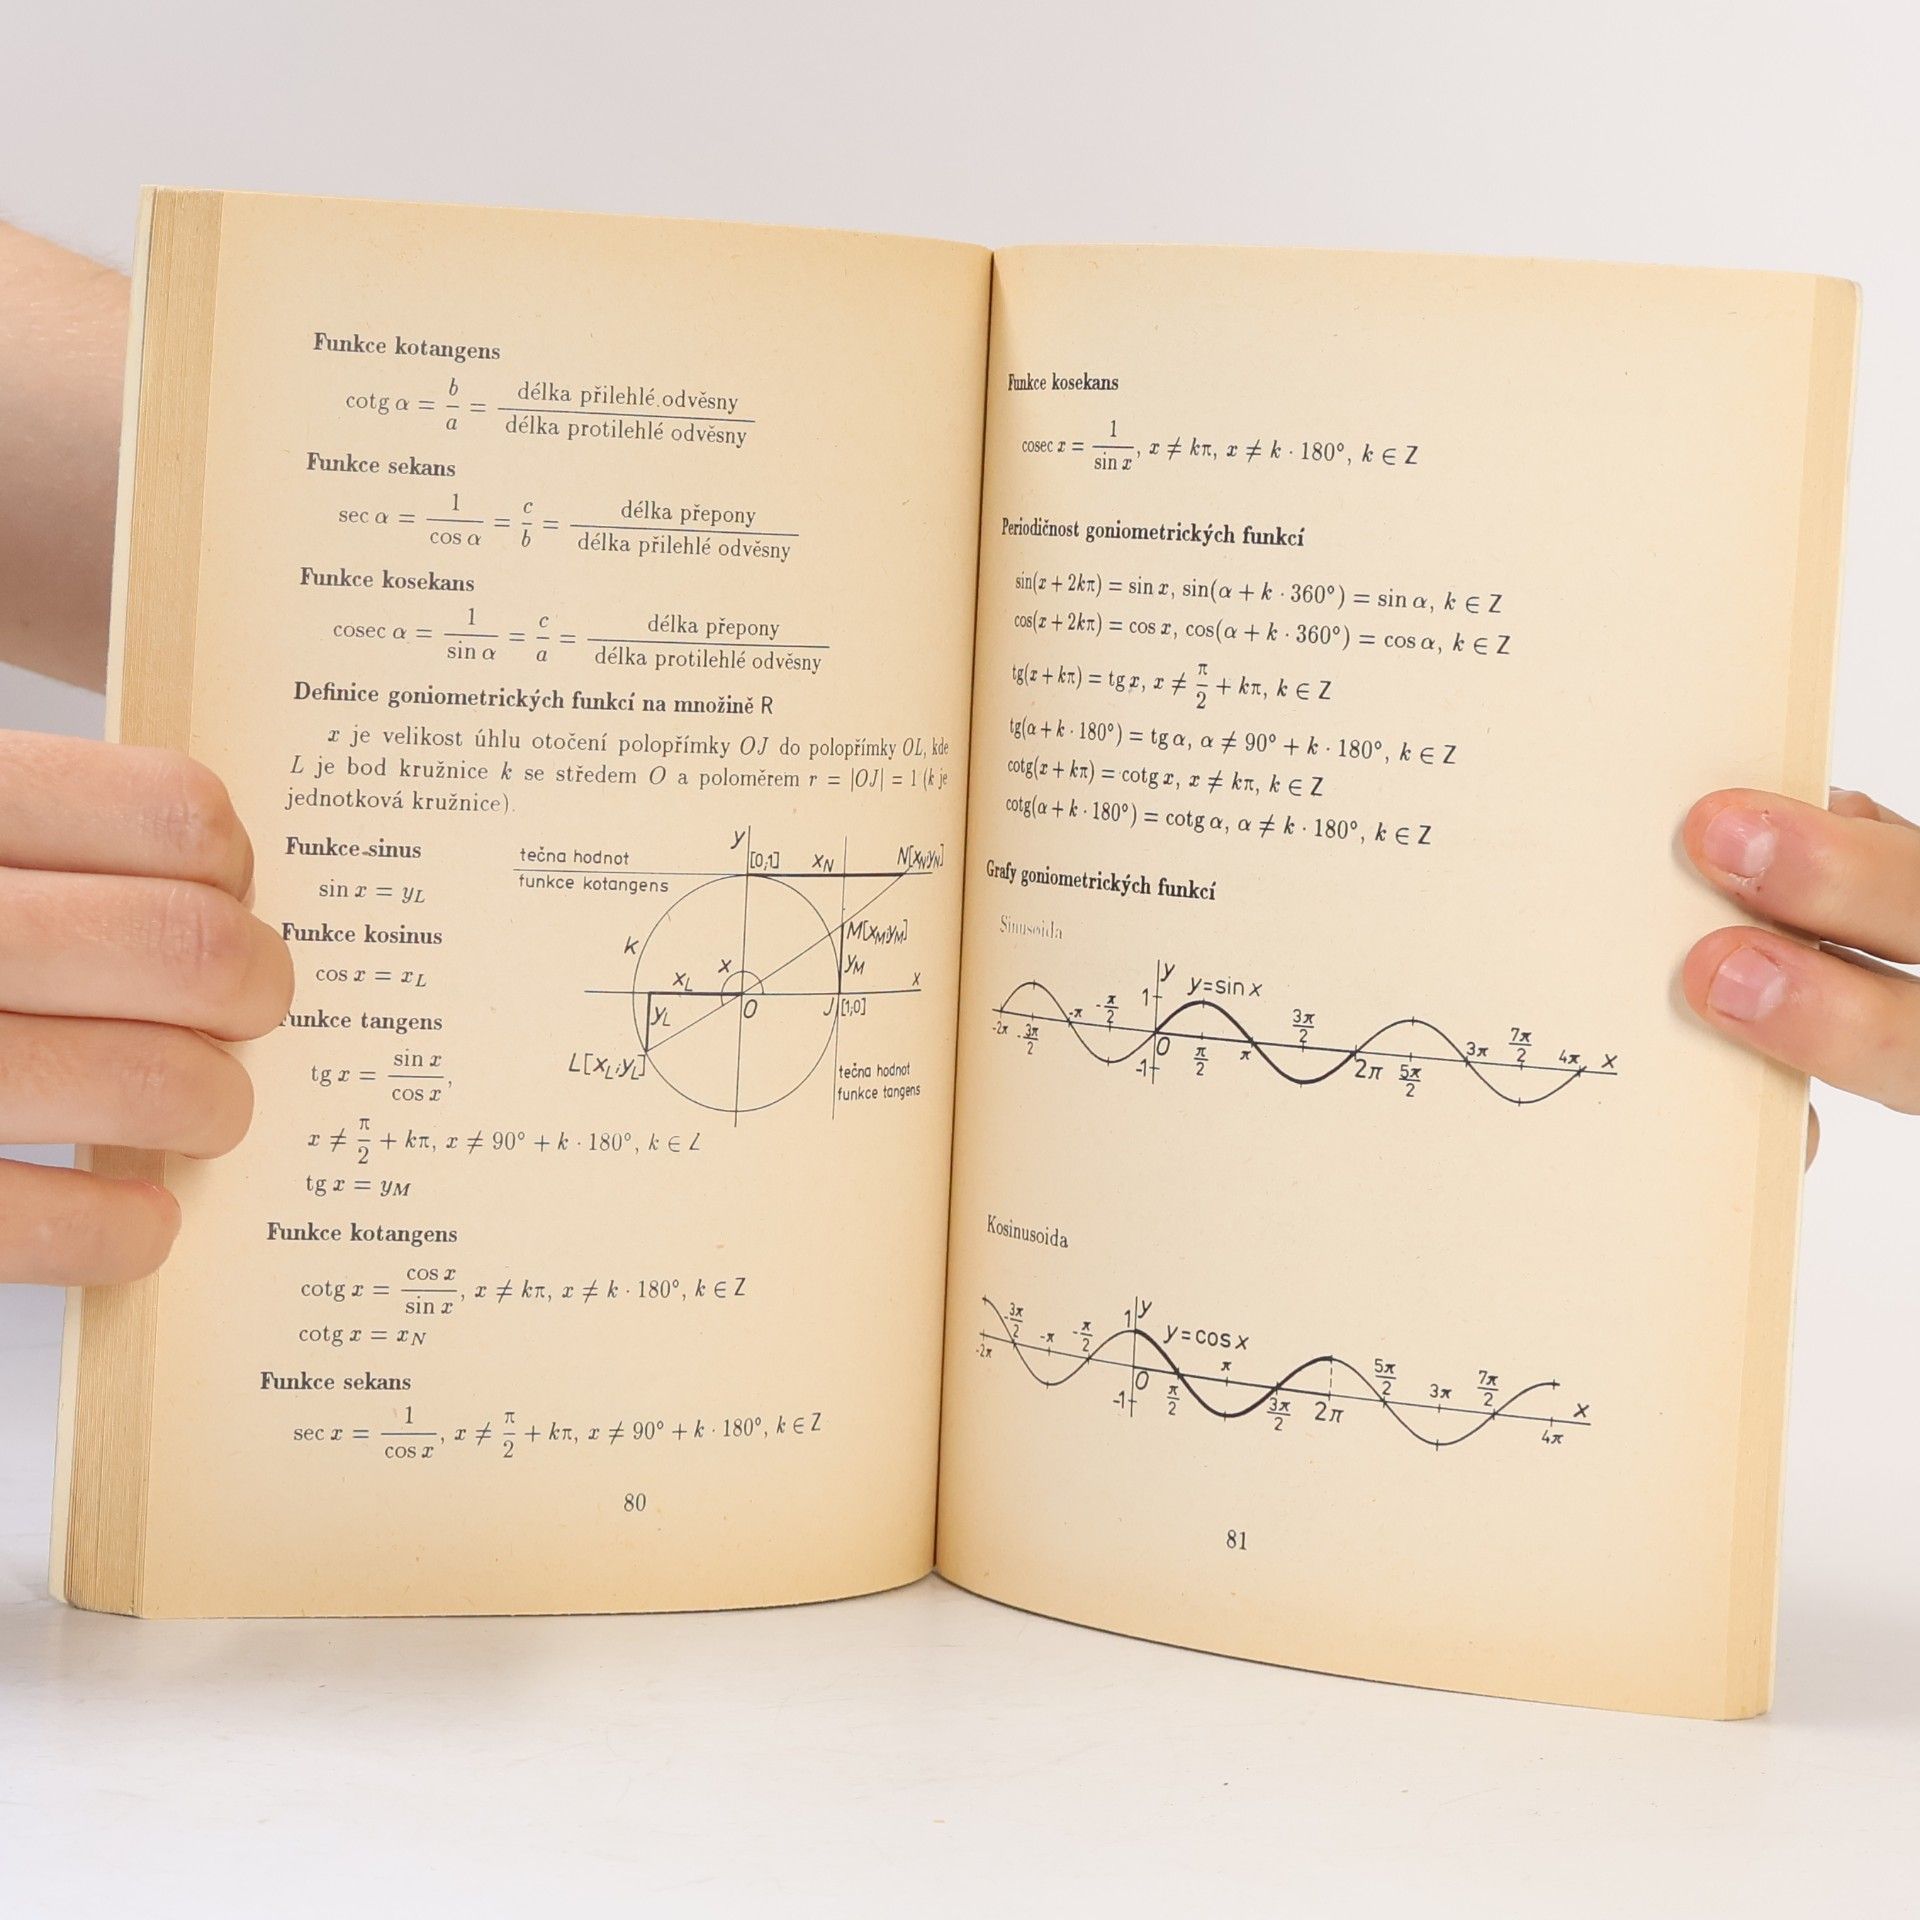 Funkce kotangens
cotg α = b/a = délka přilehlé odvěsny / délka protilehlé odvěsny
Funkce sekans
sec α = 1/cos α = c/b = délka přepony / délka přilehlé odvěsny
Funkce kosekans
cosec α = 1/sin α = c/a = délka přepony / délka protilehlé odvěsny
Definice goniometrických funkcí na množině R
x je velikost úhlu otočení polopřímky OJ do polopřímky OL, kde
L je bod kružnice k se středem O a poloměrem r = |OJ| = 1 (k je
jednotková kružnice).
Funkce sinus
sin x = y_L
Funkce kosinus
cos x = x_L
Funkce tangens
tg x = sin x / cos x,
tečna hodnot
funkce kotangens
y
[0;1]
x_N
N[x_N;y_N]
k
M[x_M;y_M]
y_M
x
x_L
x
y_L
O
J
[1;0]
L[x_L;y_L]
tečna hodnot
funkce tangens
x ≠ π/2 + kπ, x ≠ 90° + k · 180°, k ∈ Z
tg x = y_M
Funkce kotangens
cotg x = cos x / sin x, x ≠ kπ, x ≠ k · 180°, k ∈ Z
cotg x = x_N
Funkce sekans
sec x = 1/cos x, x ≠ π/2 + kπ, x ≠ 90° + k · 180°, k ∈ Z
80
Funkce kosekans
cosec x = 1/sin x, x ≠ kπ, x ≠ k · 180°, k ∈ Z
Periodičnost goniometrických funkcí
sin(x + 2kπ) = sin x, sin(α + k · 360°) = sin α, k ∈ Z
cos(x + 2kπ) = cos x, cos(α + k · 360°) = cos α, k ∈ Z
tg(x + kπ) = tg x, x ≠ π/2 + kπ, k ∈ Z
tg(α + k · 180°) = tg α, α ≠ 90° + k · 180°, k ∈ Z
cotg(x + kπ) = cotg x, x ≠ kπ, k ∈ Z
cotg(α + k · 180°) = cotg α, α ≠ k · 180°, k ∈ Z
Grafy goniometrických funkcí
Sinusoida
y
y=sin x
1
-1
-2π -3π/2 -π -π/2 0 π/2 π 3π/2 2π 5π/2 3π 7π/2 4π x
Kosinusoida
y
y=cos x
1
-1
-2π -3π/2 -π -π/2 0 π/2 π 3π/2 2π 5π/2 3π 7π/2 4π x
81